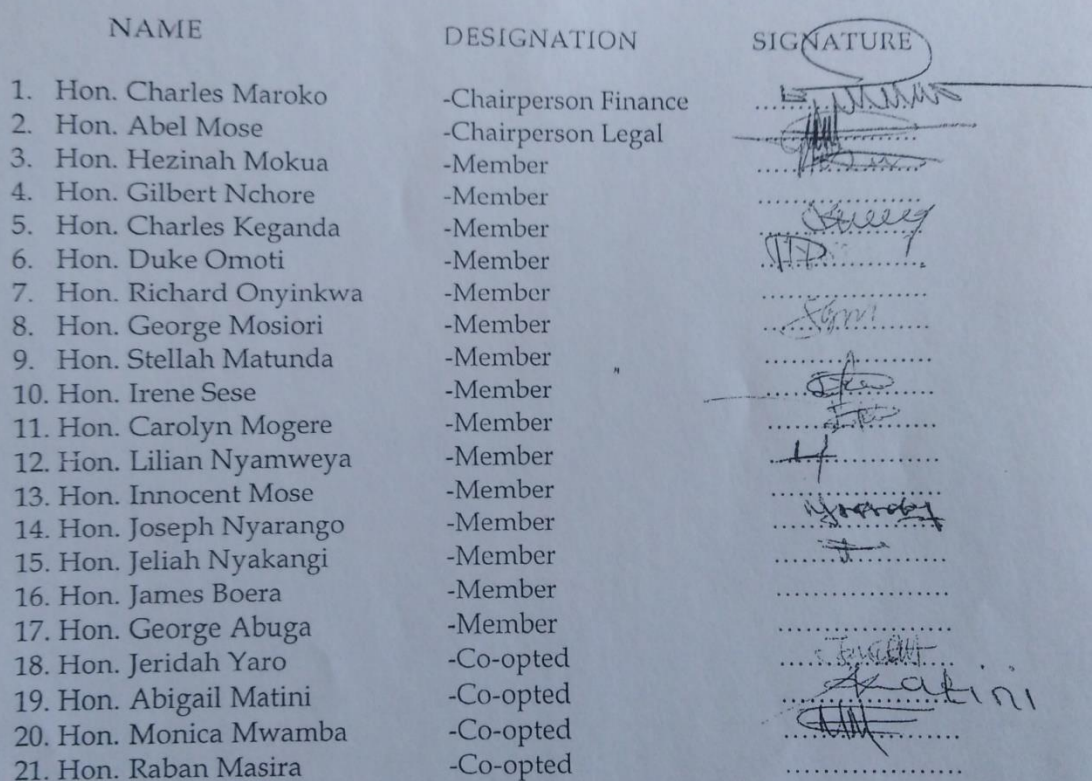 NAME DESIGNATION SIGNATURE
1. Hon. Charles Maroko -Chairperson Finance
2. Hon. Abel Mose -Chairperson Legal
3. Hon. Hezinah Mokua -Member
4. Hon. Gilbert Nchore -Member
5. Hon. Charles Keganda -Member
6. Hon. Duke Omoti -Member
7. Hon. Richard Onyinkwa -Member
8. Hon. George Mosiori -Member
9. Hon. Stellah Matunda -Member
10. Hon. Irene Sese -Member
11. Hon. Carolyn Mogere -Member
12. Hon. Lilian Nyamweya -Member
13. Hon. Innocent Mose -Member
14. Hon. Joseph Nyarango -Member
15. Hon. Jeliah Nyakangi -Member
16. Hon. James Boera -Member
17. Hon. George Abuga -Member
18. Hon. Jeridah Yaro -Co-opted
19. Hon. Abigail Matini -Co-opted
20. Hon. Monica Mwamba -Co-opted
21. Hon. Raban Masira -Co-opted